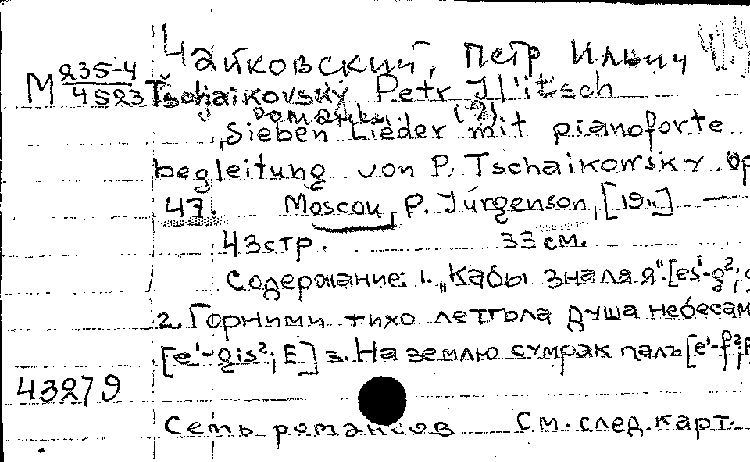 Чайковский, Петр Ильич
М 235-4/4523 Tschaikovsky Petr Il'itsch
Романсы
"Sieben Lieder mit pianoforte
begleitung von P. Tschaikowsky. Op
47. Moscou, P. Jurgenson, [19..] —
43 стр. 33 см.
Содержание: 1. "Кабы знала я". [es¹-g²;
2. Горними тихо летѣла душа небесам
[e¹-gis²; E] 3. На землю сумрак палъ [e¹-f²;
43279
Семь романсов См. след. карт.